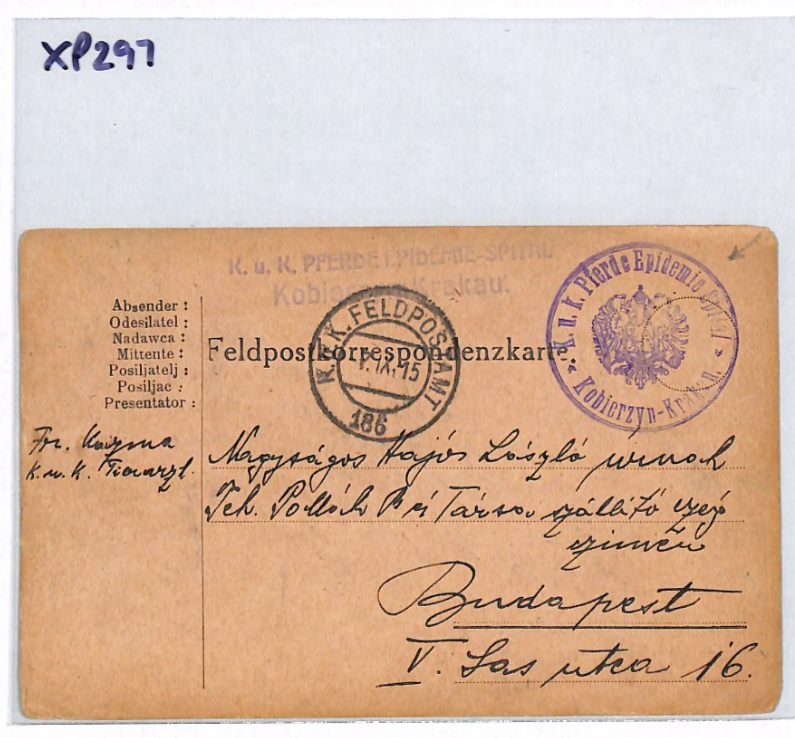 XP297
K. u. K. PFERDE EPIDEMIE-SPITAL
Kobierzyn-Krakau.
K. u. k. Pferde Epidemie Spital
Kobierzyn-Krakau.
K.u.K. FELDPOSTAMT
IX. 15
186
Absender :
Odesilatel :
Nadawca :
Mittente :
Posiljatelj :
Posiljac :
Presentator :
Feldpostkorrespondenzkarte.
Fr.
K. u. K.
Nagyságos Hajós László úrnak
Teh. Pollák és Társa szállító czég
czímén
Budapest
V. Sas utca 16.